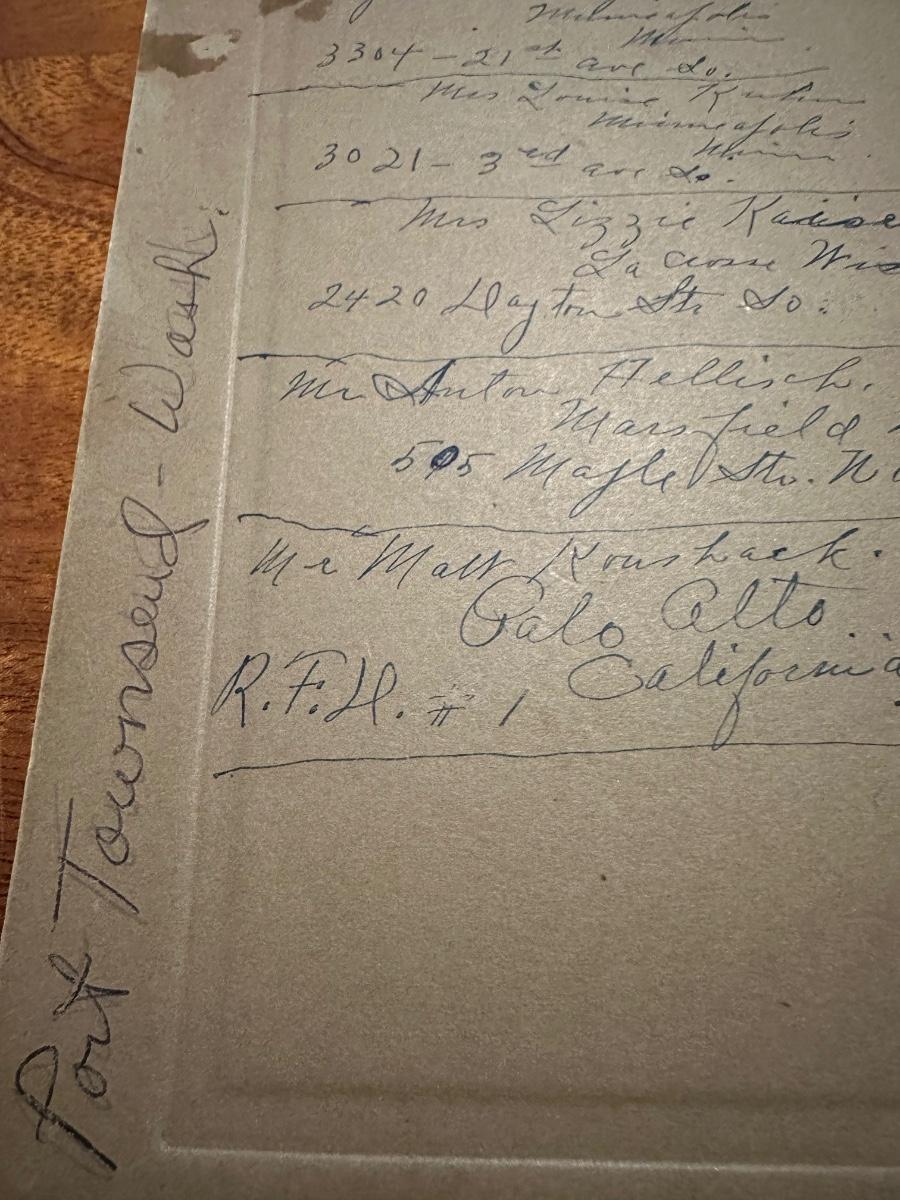 Minneapolis
Minn
3304 - 21st ave So.
Mrs Louise Kuhn
Minneapolis
Minn.
3021 - 3rd ave So.
Mrs Lizzie Kaiser
La Crosse Wis
2420 Dayton Str So.
Mr Anton Hellisch.
Marsfield
505 Maple Str. No
Mr Matt Konsback.
Palo Alto
California
R.F.D. # 1
Port Townsend - Wash.